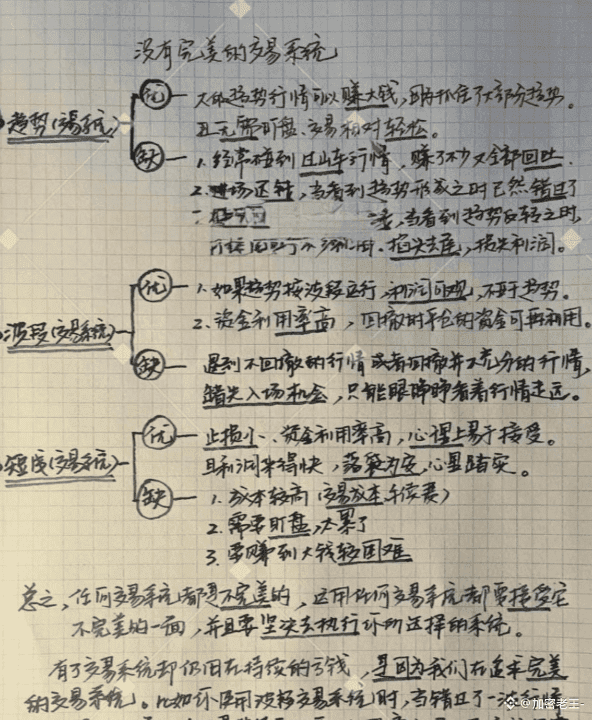 没有完美的交易系统
趋势交易系统
优 大级趋势行情可以赚大钱,即将抓住了大部分趋势。
且无需盯盘、交易相对轻松。
缺 1.经常碰到过山车行情,赚了不少又全部回吐.
2.进场迟钝,当看到趋势形成之时已然错过了
当看到趋势反转之时,
掐头去尾,损失利润。
波段交易系统
优 1.如果趋势按波段运行,利润可观,不亚于趋势。
2.资金利用率高,回撤时平仓的资金可再利用。
缺 遇到不回撤的行情或者回撤并不充分的行情,
错失入场机会,只能眼睁睁看着行情走远。
短线交易系统
优 止损小、资金利用率高,心理上易于接受。
且利润来得快,落袋为安,心里踏实。
缺 1.成本较高(交易成本手续费)
2.需要盯盘,太累了
3.要赚到大钱较困难
总之,任何交易系统都是不完美的,运用任何交易系统都要接受它
不完美的一面,并且要坚决去执行你所选择的系统。
有了交易系统却仍旧在持续的亏钱,是因为我们在追求完美
的交易系统。比如你使用波段交易系统时,当错过了一波行情
@加密老王-